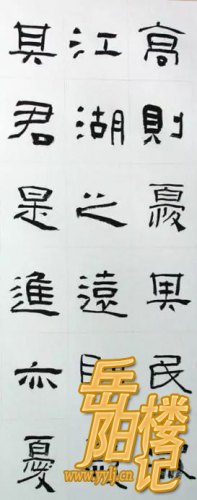 高則憂其民
江湖之遠則
其君是進亦憂
岳阳楼记
www.yylj.cn